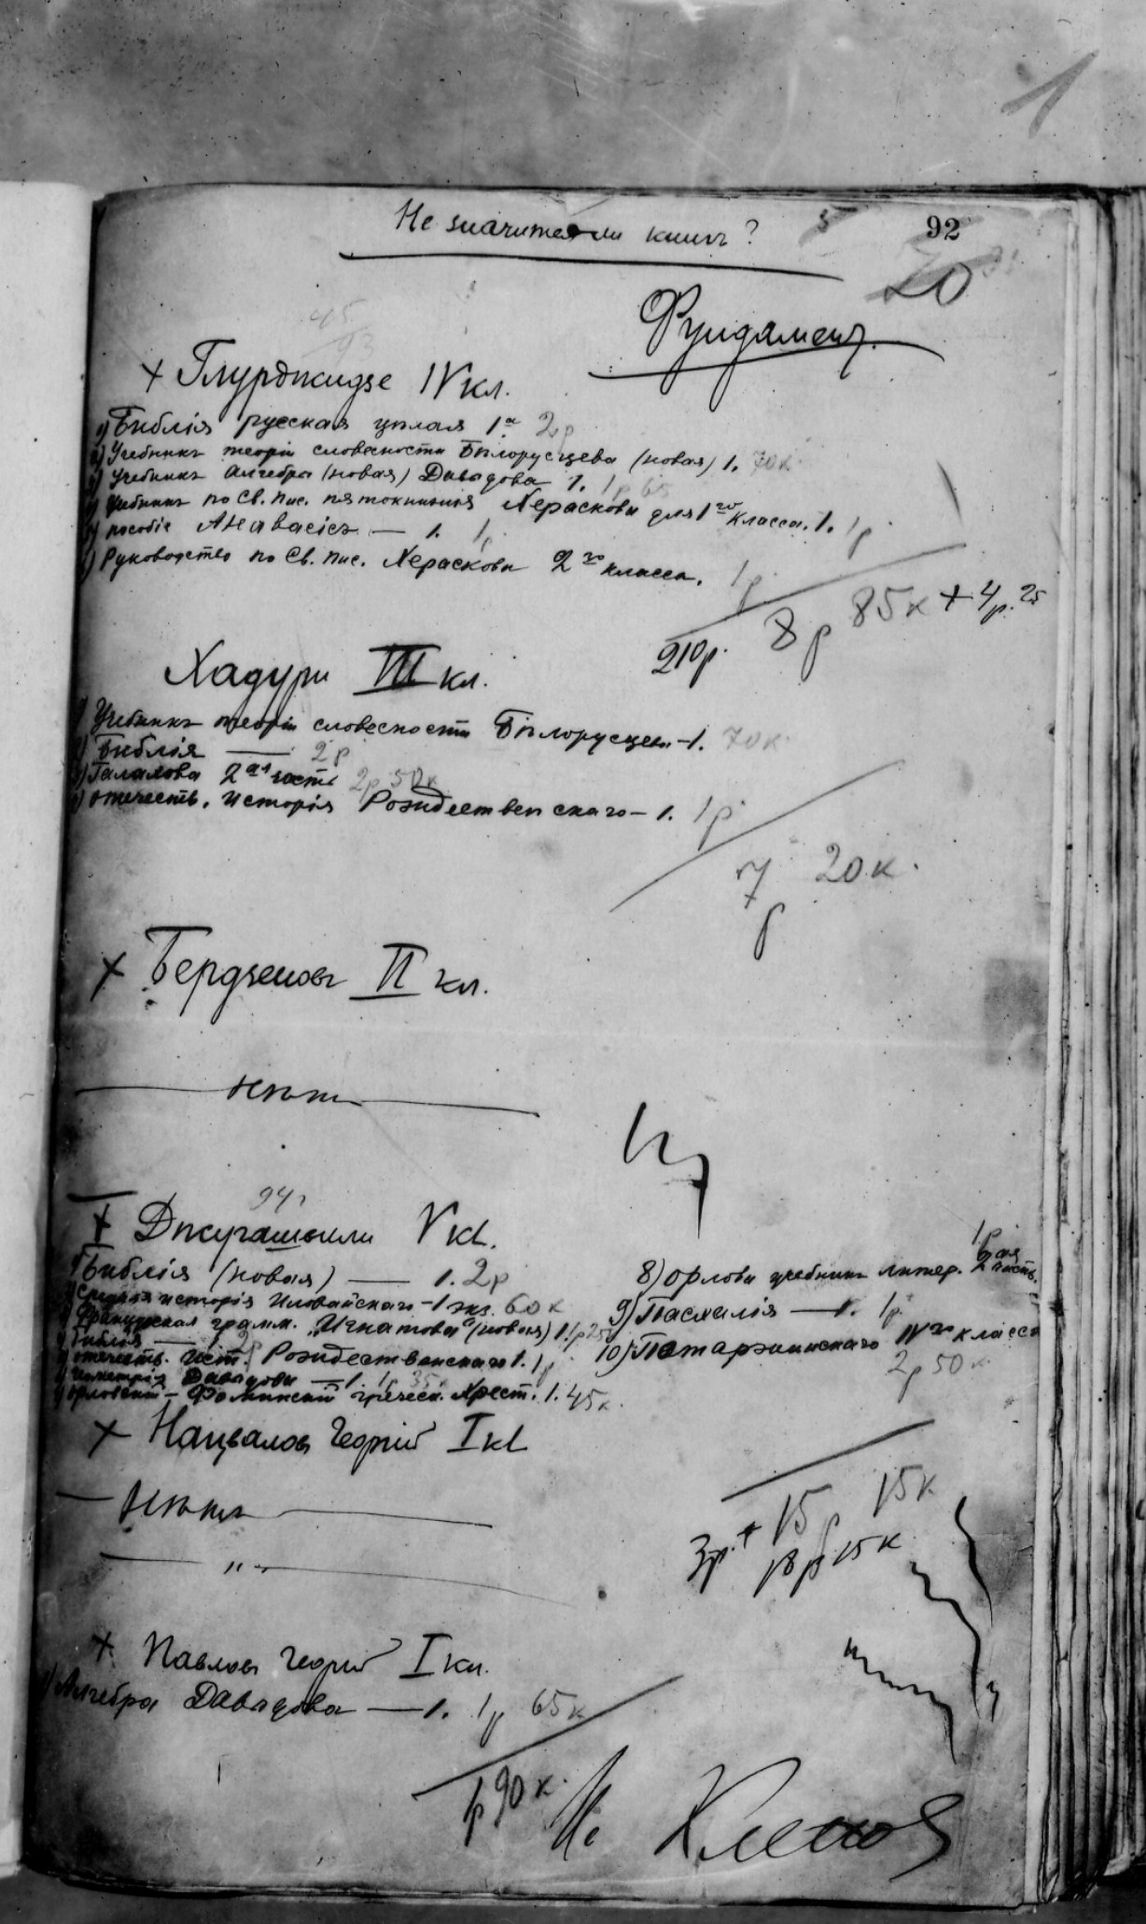 1
Не значится ли книгъ? 5 92
20
Фундамент.
+ Глурджидзе IV кл.
1) Библія русская цѣлая 1ª 2р
2) Учебникъ теоріи словесности Бѣлорусцева (новая) 1. 70к
3) Учебникъ Алгебра (новая) Давидова 1. 1р 65
4) Учебникъ по Св. Пис. пятокнижія Хераскова для 1го класса. 1. 1р
5) пособіе Анавасісъ — 1. 1р
6) Руководство по Св. Пис. Хераскова 2го класса. 1р
8р 85к + 4р. 25
210р.
Хадури III кл.
1) Учебникъ теоріи словесности Бѣлорусцев. – 1. 70к
2) Библія — 2р
3) Галахова 2ая часть 2р 50к
4) отечеств. исторія Рождественскаго – 1. 1р
7р 20к.
+ Бердзеновъ II кл.
— нѣтъ —
94
+ Джугашвили V кл.
1) Библія (новая) — 1. 2р
2) Средняя исторія Иловайскаго – 1 экз. 60к
3) Французская грамм. „Игнатова" (новая) 1. 1р 25
4) Библія — 2р
5) отечеств. ист. Рождественскаго 1. 1р
6) геометрія Давидова — 1. 1р 35к.
7) Орловскій – Фоминскій греческ. Хрест. 1. 45к.
8) Орлова учебникъ литер. 2ая часть. 1р
9) Пасхалія — 1. 1р.
10) Потаржинскаго IVго класса
2р 50к
15р 15к
3р. +
18р 15к
+ Нацваловъ Георгій I кл
— Нѣтъ —
— „ —
+ Павловъ Георгій I кл.
1) Алгебра Давидова — 1. 1р 65к
1р 90к.